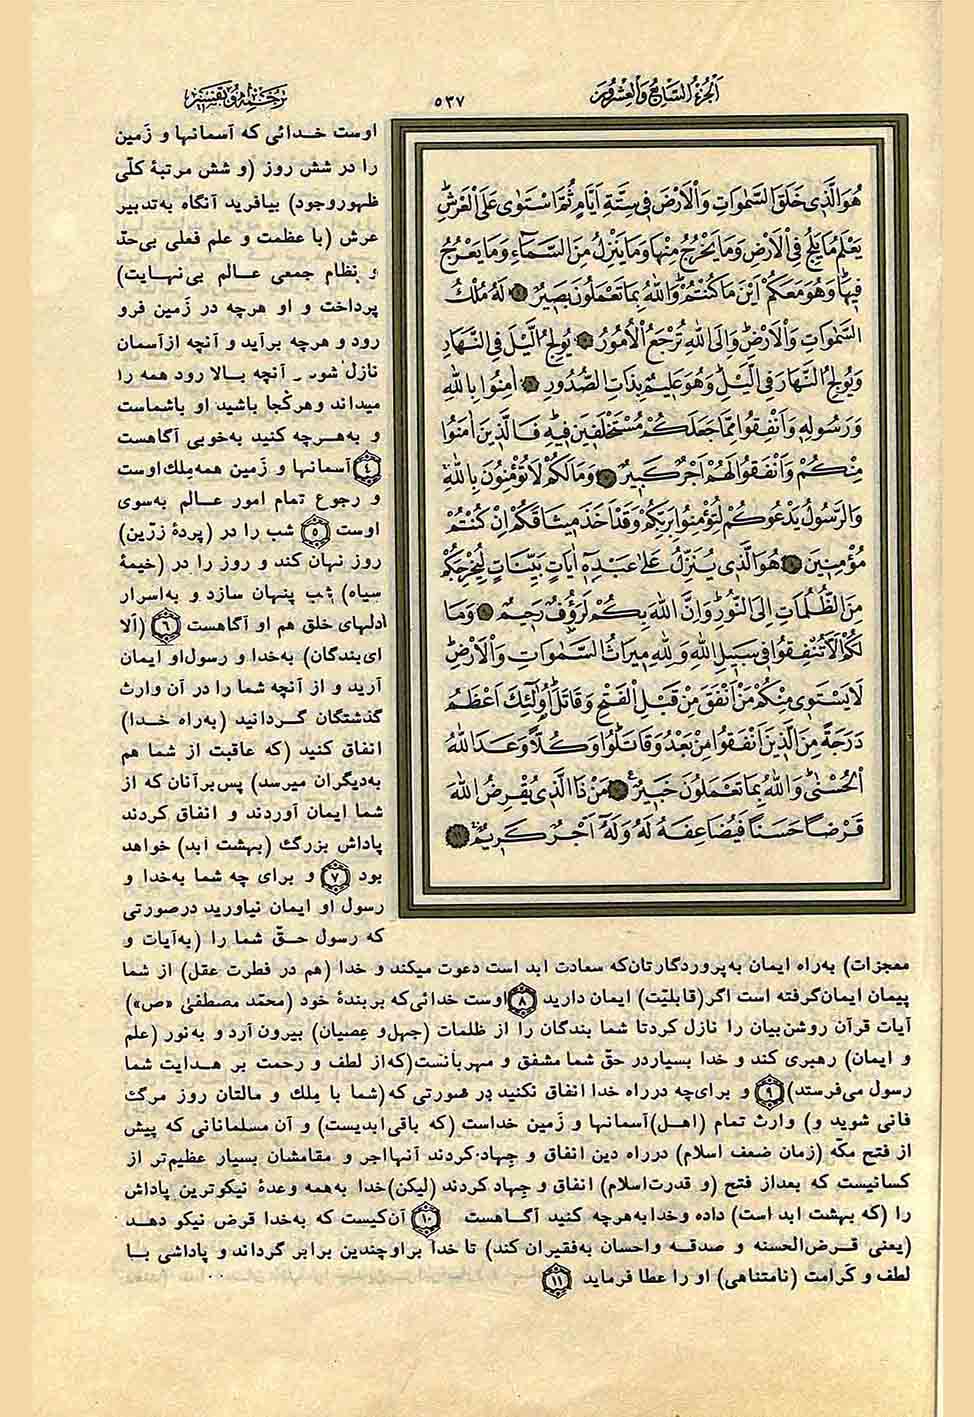 اَلجُزءُ السّابِعُ وَالعِشرُونَ
٥٣٧
ترجمه و تفسیر
هُوَ الَّذِی خَلَقَ السَّمٰوَاتِ وَالْاَرْضَ فِی سِتَّةِ اَیَّامٍ ثُمَّ اسْتَوٰی عَلَی الْعَرْشِ
یَعْلَمُ مَا یَلِجُ فِی الْاَرْضِ وَمَا یَخْرُجُ مِنْهَا وَمَا یَنْزِلُ مِنَ السَّمَاءِ وَمَا یَعْرُجُ
فِیهَا وَهُوَ مَعَكُمْ اَیْنَ مَا كُنْتُمْ وَاللّٰهُ بِمَا تَعْمَلُونَ بَصِیرٌ لَهُ مُلْكُ
السَّمٰوَاتِ وَالْاَرْضِ وَاِلَی اللّٰهِ تُرْجَعُ الْاُمُورُ یُولِجُ الَّیْلَ فِی النَّهَارِ
وَیُولِجُ النَّهَارَ فِی الَّیْلِ وَهُوَ عَلِیمٌ بِذَاتِ الصُّدُورِ اٰمِنُوا بِاللّٰهِ
وَرَسُولِهِ وَاَنْفِقُوا مِمَّا جَعَلَكُمْ مُسْتَخْلَفِینَ فِیهِ فَالَّذِینَ اٰمَنُوا
مِنْكُمْ وَاَنْفَقُوا لَهُمْ اَجْرٌ كَبِیرٌ وَمَا لَكُمْ لَا تُؤْمِنُونَ بِاللّٰهِ
وَالرَّسُولُ یَدْعُوكُمْ لِتُؤْمِنُوا بِرَبِّكُمْ وَقَدْ اَخَذَ مِیثَاقَكُمْ اِنْ كُنْتُمْ
مُؤْمِنِینَ هُوَ الَّذِی یُنَزِّلُ عَلٰی عَبْدِهِ اٰیَاتٍ بَیِّنَاتٍ لِیُخْرِجَكُمْ
مِنَ الظُّلُمَاتِ اِلَی النُّورِ وَاِنَّ اللّٰهَ بِكُمْ لَرَؤُفٌ رَحِیمٌ وَمَا
لَكُمْ اَلَّا تُنْفِقُوا فِی سَبِیلِ اللّٰهِ وَلِلّٰهِ مِیرَاثُ السَّمٰوَاتِ وَالْاَرْضِ
لَا یَسْتَوِی مِنْكُمْ مَنْ اَنْفَقَ مِنْ قَبْلِ الْفَتْحِ وَقَاتَلَ اُولٰئِكَ اَعْظَمُ
دَرَجَةً مِنَ الَّذِینَ اَنْفَقُوا مِنْ بَعْدُ وَقَاتَلُوا وَكُلًّا وَعَدَ اللّٰهُ
الْحُسْنٰی وَاللّٰهُ بِمَا تَعْمَلُونَ خَبِیرٌ مَنْ ذَا الَّذِی یُقْرِضُ اللّٰهَ
قَرْضًا حَسَنًا فَیُضَاعِفَهُ لَهُ وَلَهُ اَجْرٌ كَرِیمٌ ١١
اوست خدائی که آسمانها و زَمین
را در شش روز (و شش مرتبهٔ کلّی
ظهور وجود) بیافرید آنگاه به‌تدبیر
عرش (با عظمت و علم فعلی بی‌حدّ
و نظام جمعی عالم بی‌نهایت)
پرداخت و او هرچه در زَمین فرو
رود و هرچه برآید و آنچه ازآسمان
نازل شود و آنچه بالا رود همه را
میداند وهرکُجا باشید او باشماست
و به‌هرچه کنید به‌خوبی آگاهست
٤ آسمانها و زَمین همه مِلك اوست
و رجوع تمام امور عالم به‌سوی
اوست ٥ شب را در (پردهٔ زرّین)
روز نهان کند و روز را در (خیمهٔ
سیاه) شب پنهان سازد و به‌اسرار
دلهای خلق هم او آگاهست ٦ (اَلا
ای‌بندگان) به‌خدا و رسول‌او ایمان
آرید و از آنچه شما را در آن وارث
گذشتگان گردانید (به‌راه خدا)
انفاق کنید (که عاقبت از شما هم
به‌دیگران میرسد) پس‌برآنان که از
شما ایمان آوردند و انفاق کردند
پاداش بزرگ (بهشت ابد) خواهد
بود ٧ و برای چه شما به‌خدا و
رسول او ایمان نیاورید درصورتی
که رسول حقّ شما را (به‌آیات و
معجزات) به‌راه ایمان به‌پروردگارتان‌که سعادت ابد است دعوت میکند و خدا (هم در فطرت عقل) از شما
پیمان ایمان‌گرفته است اگر(قابلیّت) ایمان دارید ٨ اوست خدائی‌که بربندهٔ خود (محمّد مصطفیٰ «ص»)
آیات قرآن روشن‌بیان را نازل کردتا شما بندگان را از ظلمات (جهل‌و عِصیان) بیرون آرد و به‌نور (علم
و ایمان) رهبری کند و خدا بسیاردر حقّ شما مشفق و مهربانست(که‌از لطف و رحمت بر هدایت شما
رسول می‌فرستد) ٩ و برای‌چه درراه خدا انفاق نکنید در صورتی که(شما با مِلك و مالتان روز مرگ
فانی شوید و) وارث تمام (اهل)آسمانها و زَمین خداست (که باقی‌ابدیست) و آن مسلمانانی که پیش
از فتح مکّه (زمان ضعف اسلام) درراه دین انفاق و جِهاد کردند آنهااجر و مقامشان بسیار عظیم‌تر از
کسانیست که بعداز فتح (و قدرت‌اسلام) انفاق و جِهاد کردند (لیکن)خدا به‌همه وعدهٔ نیکوترین پاداش
را (که بهشت ابد است) داده وخدابه‌هرچه کنید آگاهست ١٠ آن‌کیست که به‌خدا قرض نیکو دهد
(یعنی قرض‌الحسنه و صدقه واحسان به‌فقیران کند) تا خدا براوچندین برابر گرداند و پاداشی با
لطف و کَرامت (نامتناهی) او را عطا فرماید ١١